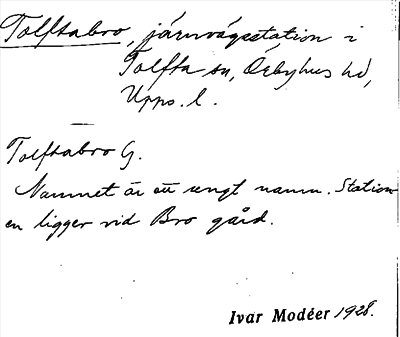 Tolftabro, järnvägsstation i
Tolfta sn, Örbyhus hd,
Upps. l.
Tolftabro G.
Namnet är ett ungt namn. Station-
en ligger vid Bro gård.
Ivar Modéer 1928.